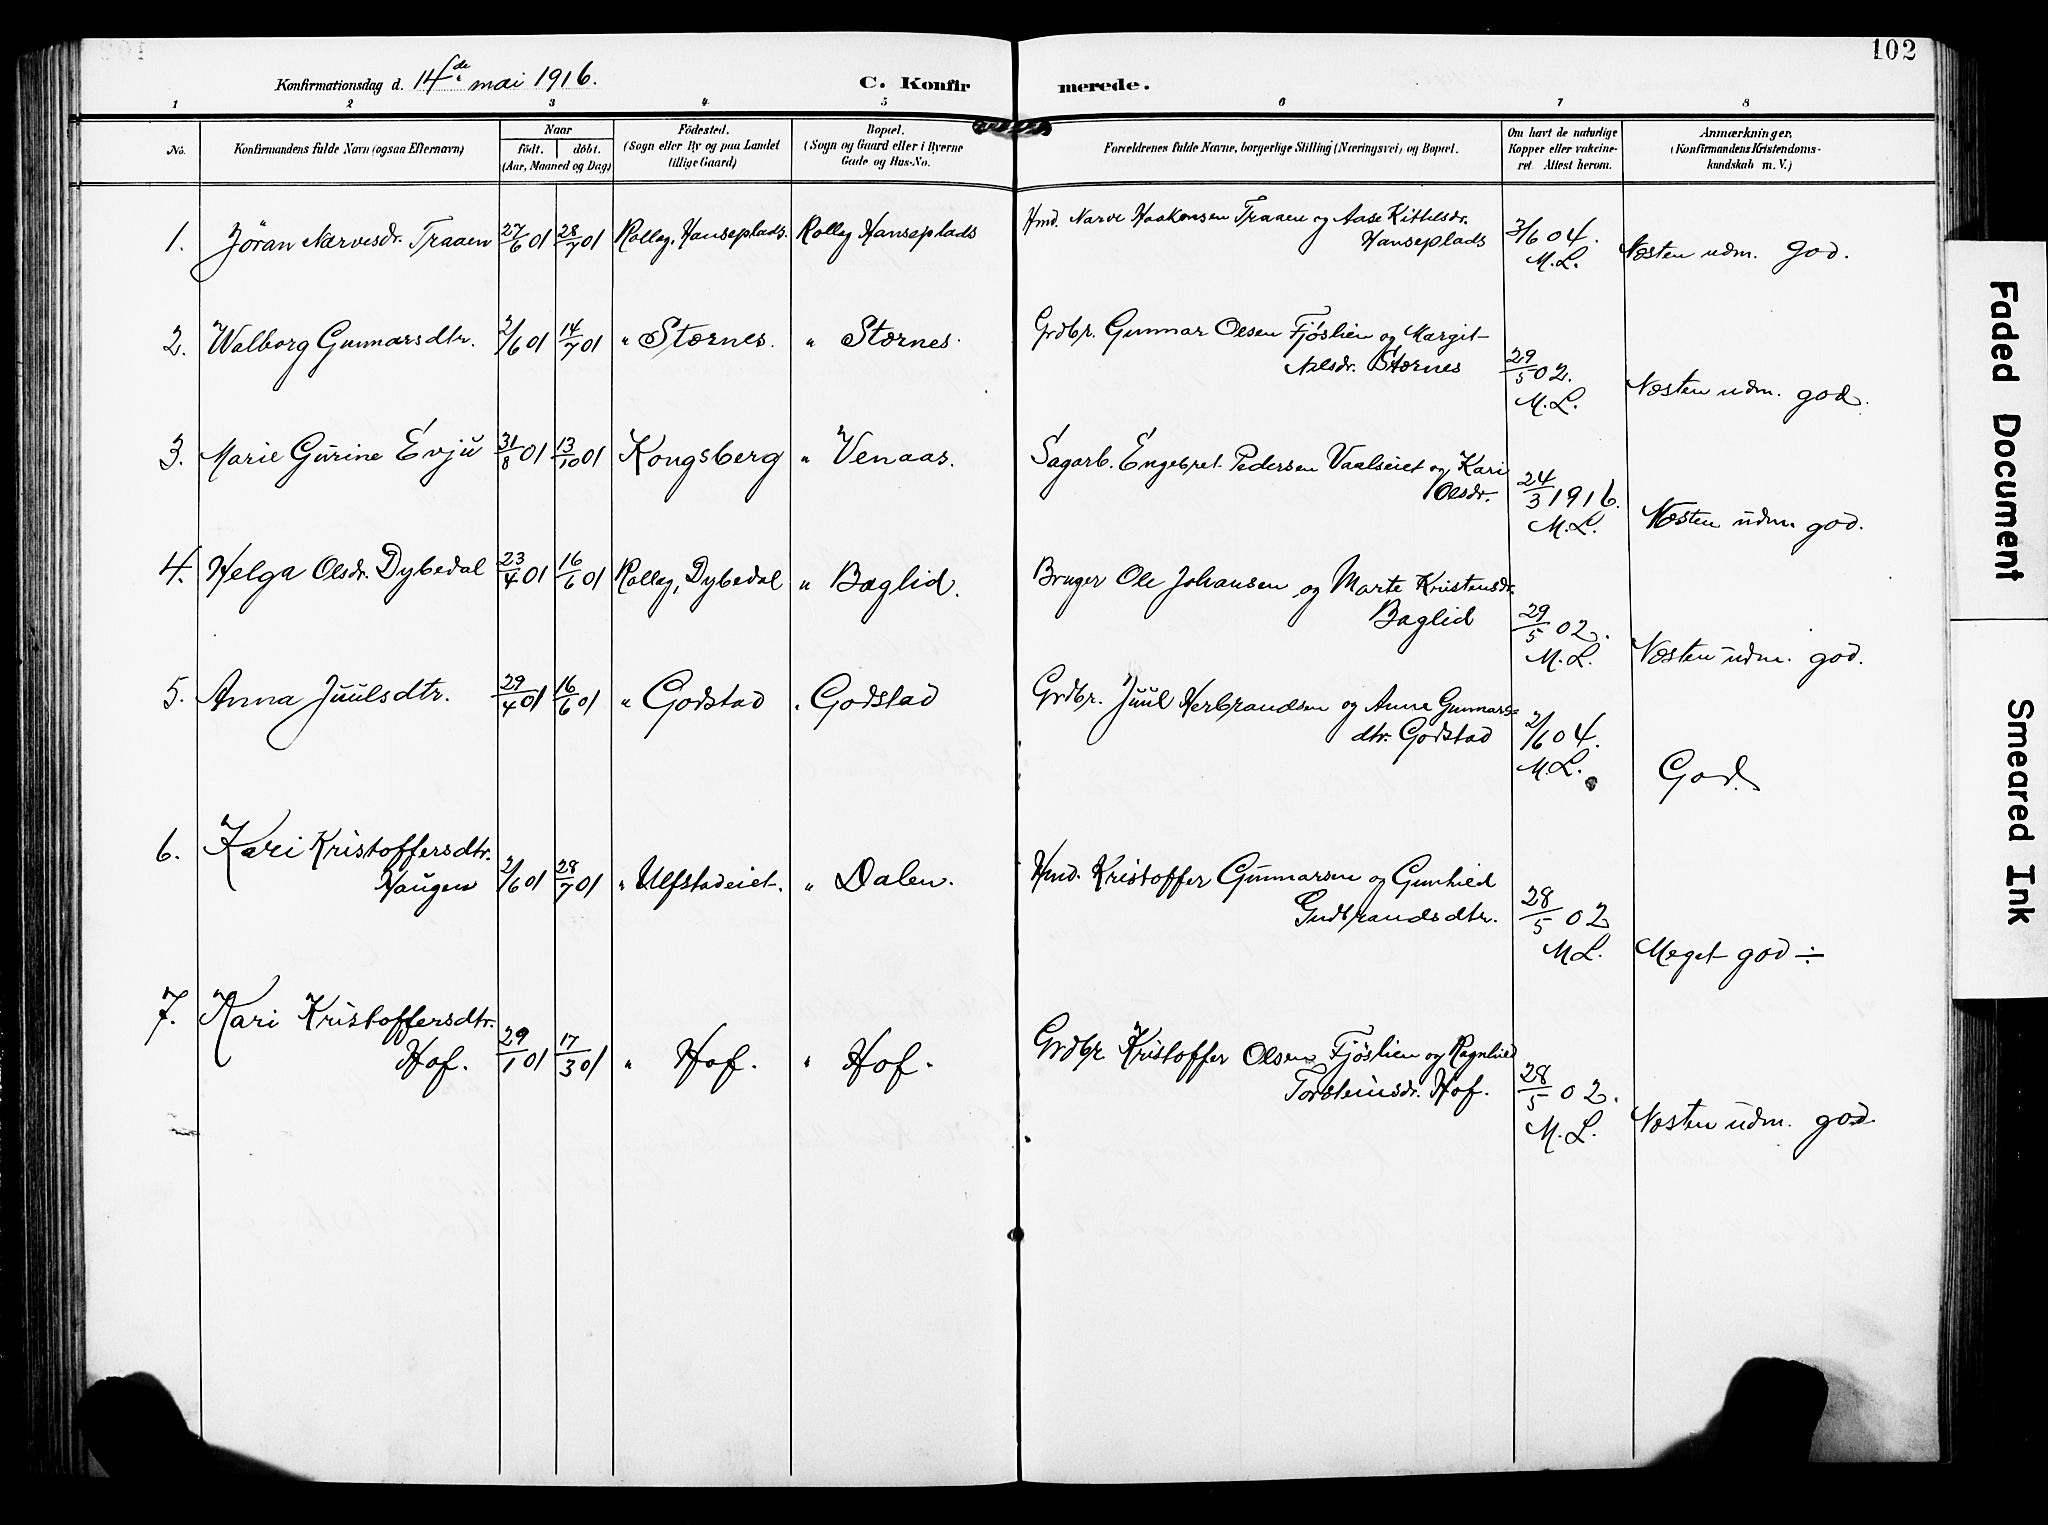 102
Konfirmationsdag d. 14de mai 1916.
C. Konfirmerede.
1 2 3 4 5 6 7 8
No.
Konfirmandens fulde Navn (ogsaa Efternavn)
Naar
födt. döbt.
(Aar, Maaned og Dag)
Födested.
(Sogn eller By og paa Landet
tillige Gaard)
Bopæl.
(Sogn og Gaard eller i Byerne
Gade og Hus-No.
Forældrenes fulde Navne, borgerlige Stilling (Næringsvei) og Bopæl.
Om havt de naturlige
Kopper eller vakcine-
ret. Attest herom.
Anmærkninger.
(Konfirmandens Kristendoms-
kundskab m. V.)
1. Jöran Narvesdr. Traaen 27/6 01 28/7 01 Rollag, Hanseplads. Rollag Hanseplads Hmd. Narve Haakensen Traaen og Aase Kittelsdr.
Hanseplads 3/6 04.
M.L. Næsten udm. god.
2. Walborg Gunnarsdtr. 2/6 01 14/7 01 " Stærnes. " Stærnes. Grdbr. Gunnar Olsen Fjöslien og Margit
Nilsdr. Stærnes 29/5 02.
M.L. Næsten udm. god.
3. Marie Gurine Evju 31/8 01 13/10 01 Kongsberg " Venaas. Sagarb. Engebret Pedersen Vaalseiet og Kari
Olsdr. 24/3 1916.
M.L. Næsten udm. god.
4. Helga Olsdr. Dybedal 23/4 01 16/6 01 Rollag, Dybedal " Baglid. Bruger Ole Johansen og Marte Kristensdr.
Baglid 29/5 02.
M.L. Næsten udm. god.
5. Anna Juulsdtr. 29/4 01 16/6 01 " Godstad " Godstad Grdbr. Juul Herbrandsen og Anne Gunnars=
dtr. Godstad 2/6 04.
M.L. God.
6. Kari Kristoffersdtr.
Haugen 2/6 01 28/7 01 " Ulfstadeiet. " Dalen. Hmd. Kristoffer Gunnarsen og Gunhild
Gudbrandsdtr. 28/5 02
M.L. Meget god ÷
7. Kari Kristoffersdtr.
Hof. 29/1 01 17/3 01 " Hof. " Hof. Grdbr Kristoffer Olsen Fjöslien og Ragnhild
Torsteinsdr. Hof. 28/5 02.
M.L. Næsten udm. god
Faded Document
Smeared Ink